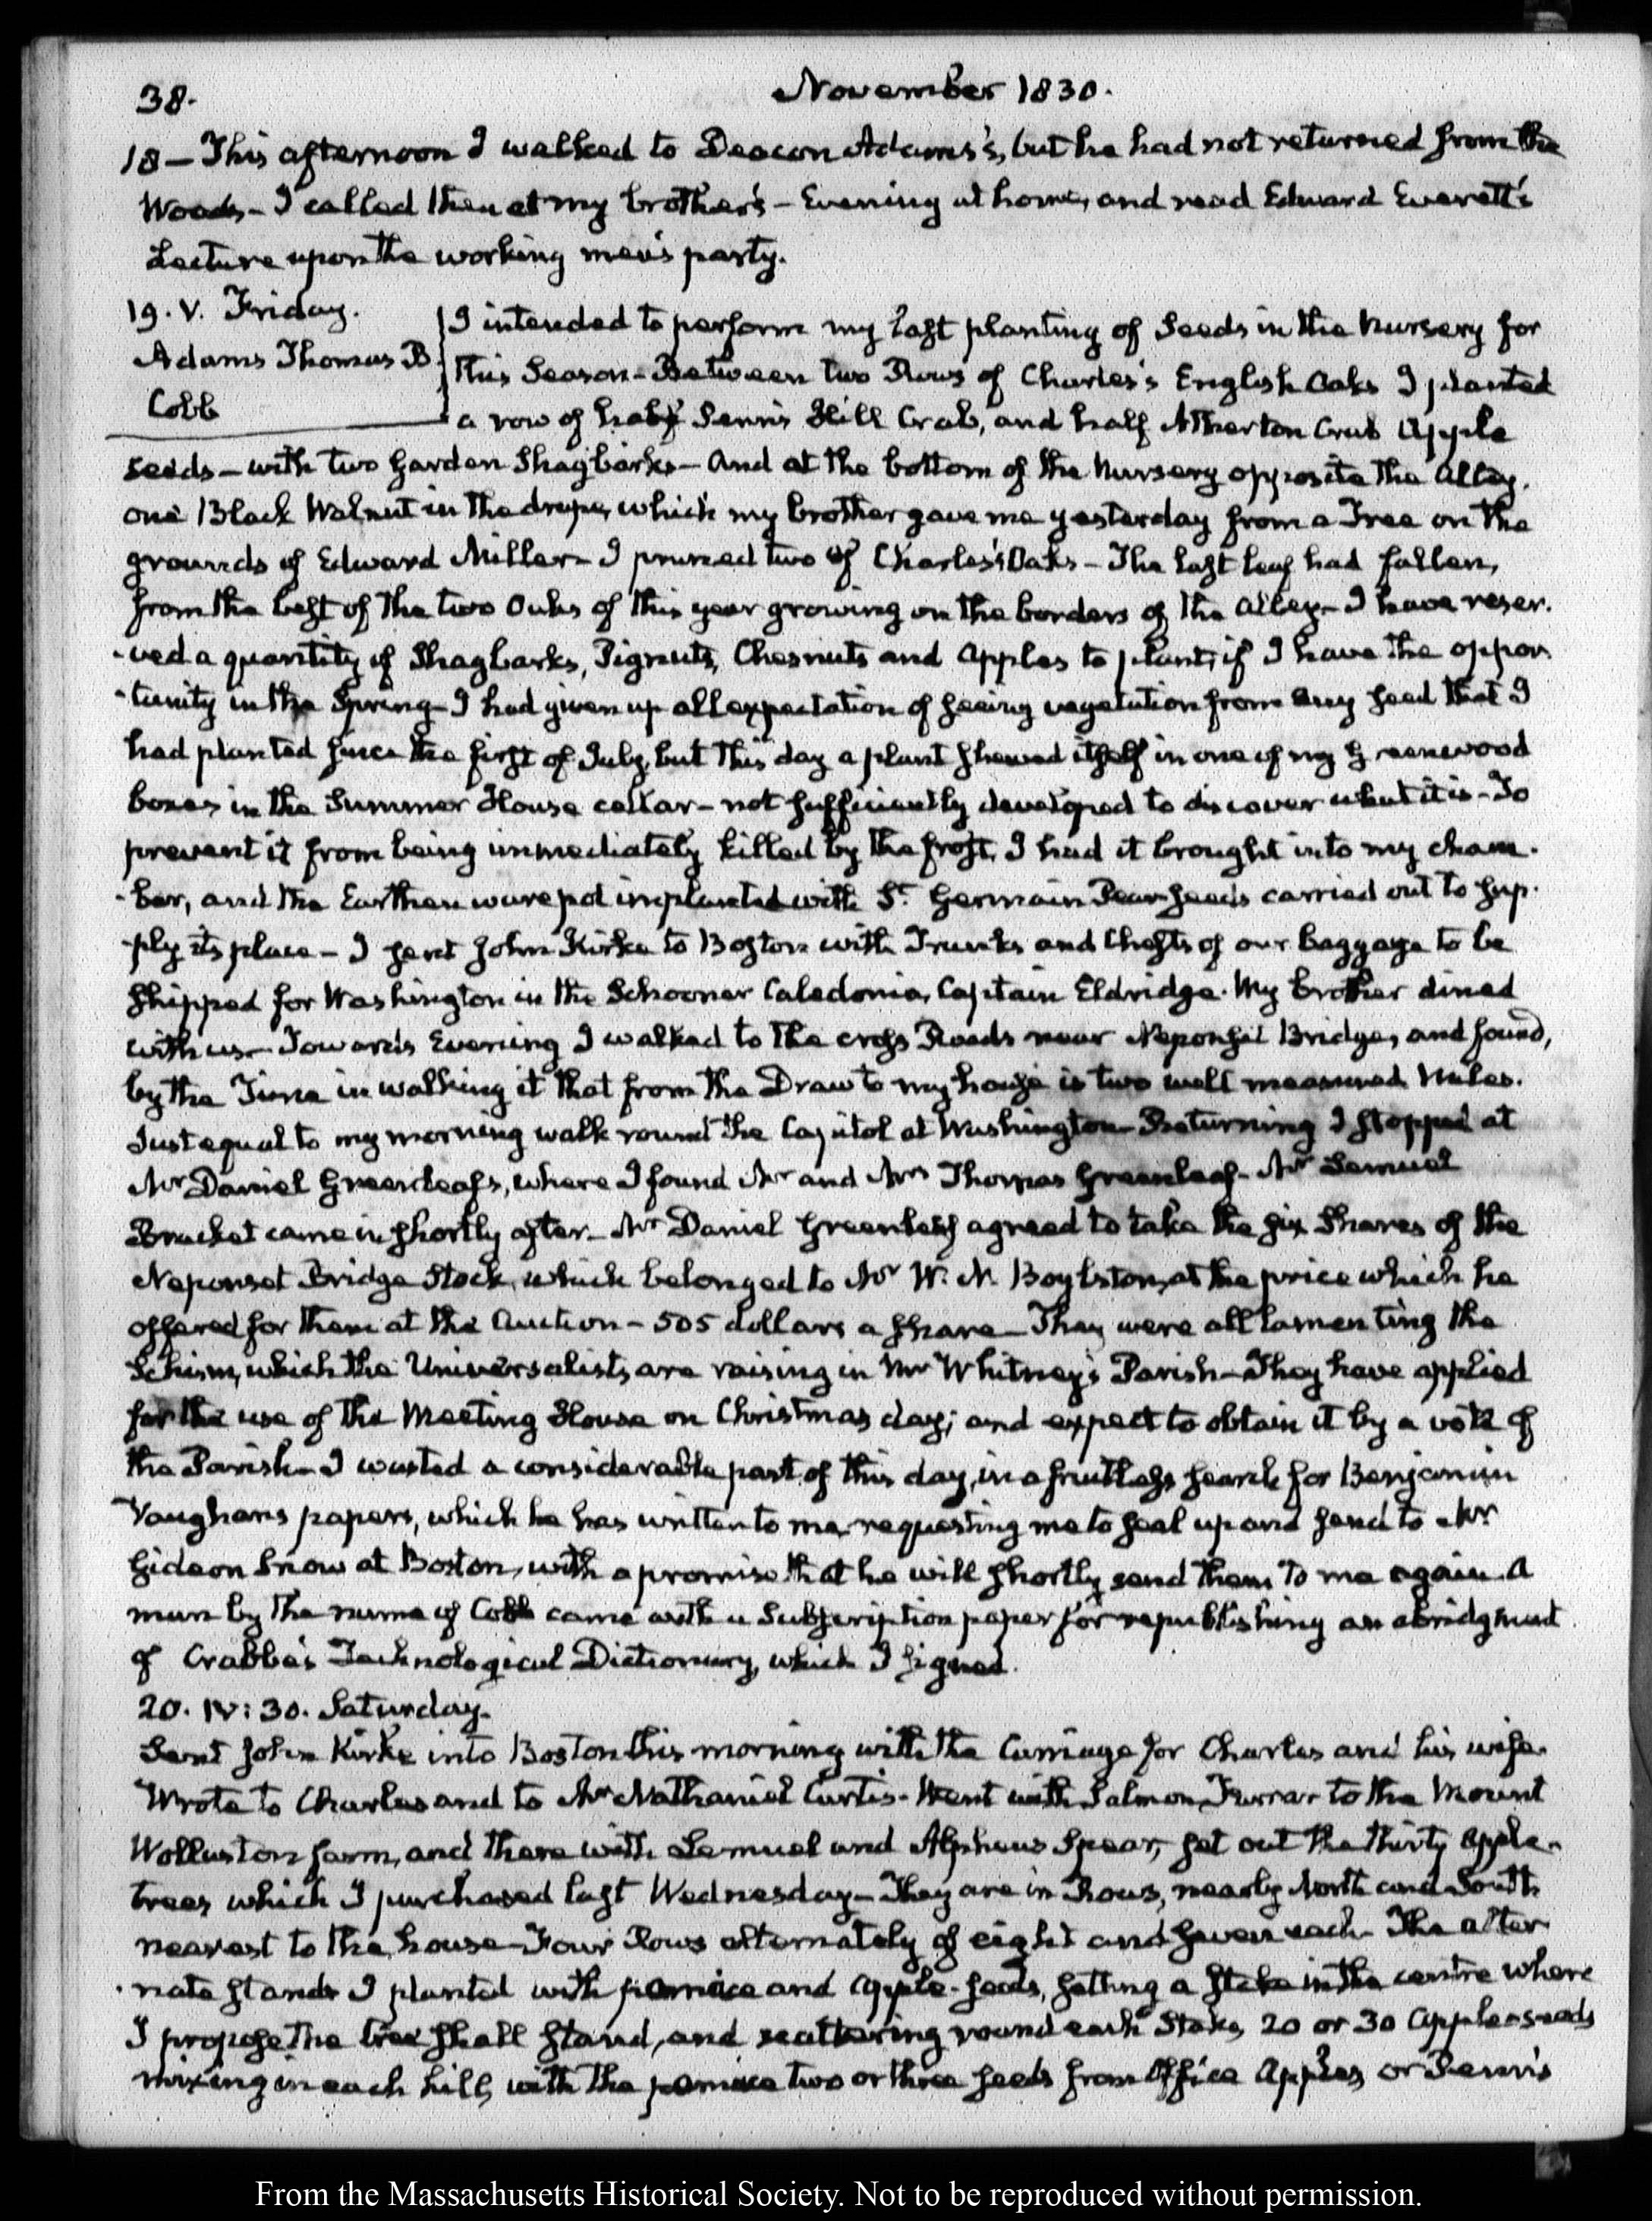 38.
November 1830.
18 — This afternoon I walked to Deacon Adams's, but he had not returned from the
Woods — I called then at my brother's — Evening at home, and read Edward Everett's
Lecture upon the working men's party.
19. V. Friday.
Adams Thomas B.
Cobb
I intended to perform my last planting of Seeds in the Nursery for
this Season — Between two Rows of Charles's English Oaks I planted
a row of half Penn's Hill Crab, and half Atherton Crab Apple
seeds — with two Garden Shagbarks — And at the bottom of the Nursery opposite the Alley.
one Black Walnut in the drupe, which my brother gave me yesterday from a Tree on the
grounds of Edward Miller — I pruned two of Charles's Oaks — The last leaf had fallen,
from the best of the two Oaks of this year growing on the borders of the Alley — I have reser-
-ved a quantity of Shagbarks, Pignuts, Chesnuts and Apples to plant, if I have the oppor-
-tunity in the Spring — I had given up all expectation of seeing vegetation from any seed that I
had planted since the first of July, but this day a plant shewed itself in one of my Greenwood
boxes in the Summer House cellar — not sufficiently developed to discover what it is — To
prevent it from being immediately killed by the frost, I had it brought into my cham-
-ber, and the Earthen ware pot implanted with St. Germain Pear seeds carried out to sup-
-ply its place — I sent John Kirke to Boston with Trunks and Chests of our baggage to be
shipped for Washington in the Schooner Caledonia, Captain Eldridge. My brother dined
with us — Towards Evening I walked to the cross Roads near Neponset Bridge, and found,
by the Time in walking it that from the Draw to my house is two well measured Miles.
Just equal to my morning walk round the Capitol at Washington — Returning I stopped at
Mr Daniel Greenleaf's, where I found Mr and Mrs Thomas Greenleaf — Mr Lemuel
Bracket came in shortly after — Mr Daniel Greenleaf agreed to take the six Shares of the
Neponset Bridge Stock, which belonged to Mr W. N. Boylston, at the price which he
offered for them at the Auction — 505 dollars a share — They were all lamenting the
Schism, which the Universalists are raising in Mr Whitney's Parish — They have applied
for the use of the Meeting House on Christmas day; and expect to obtain it by a vote of
the Parish — I wasted a considerable part of this day, in a fruitless search for Benjamin
Vaughan's papers, which he has written to me requesting me to seal up and send to Mr
Gideon Snow at Boston, with a promise that he will shortly send them to me again. A
man by the name of Cobb came with a Subscription paper for republishing an abridgment
of Crabbe's Technological Dictionary, which I signed.
20. IV: 30. Saturday.
Sent John Kirke into Boston this morning with the Carriage for Charles and his wife.
Wrote to Charles and to Mr Nathaniel Curtis. Went with Salmon Farrar to the Mount
Wollaston farm, and there with Lemuel and Alpheus Spear, set out the thirty Apple-
trees which I purchased last Wednesday — They are in Rows, nearly North and South
nearest to the house — Four Rows alternately of eight and seven each — The alter-
-nate stands I planted with pomice and Apple-seeds, setting a stake in the centre where
I propose the tree shall stand, and scattering round each Stake, 20 or 30 Apple-seeds
mixing in each hill, with the pomice two or three seeds from Office Apples, or Penn's
From the Massachusetts Historical Society. Not to be reproduced without permission.